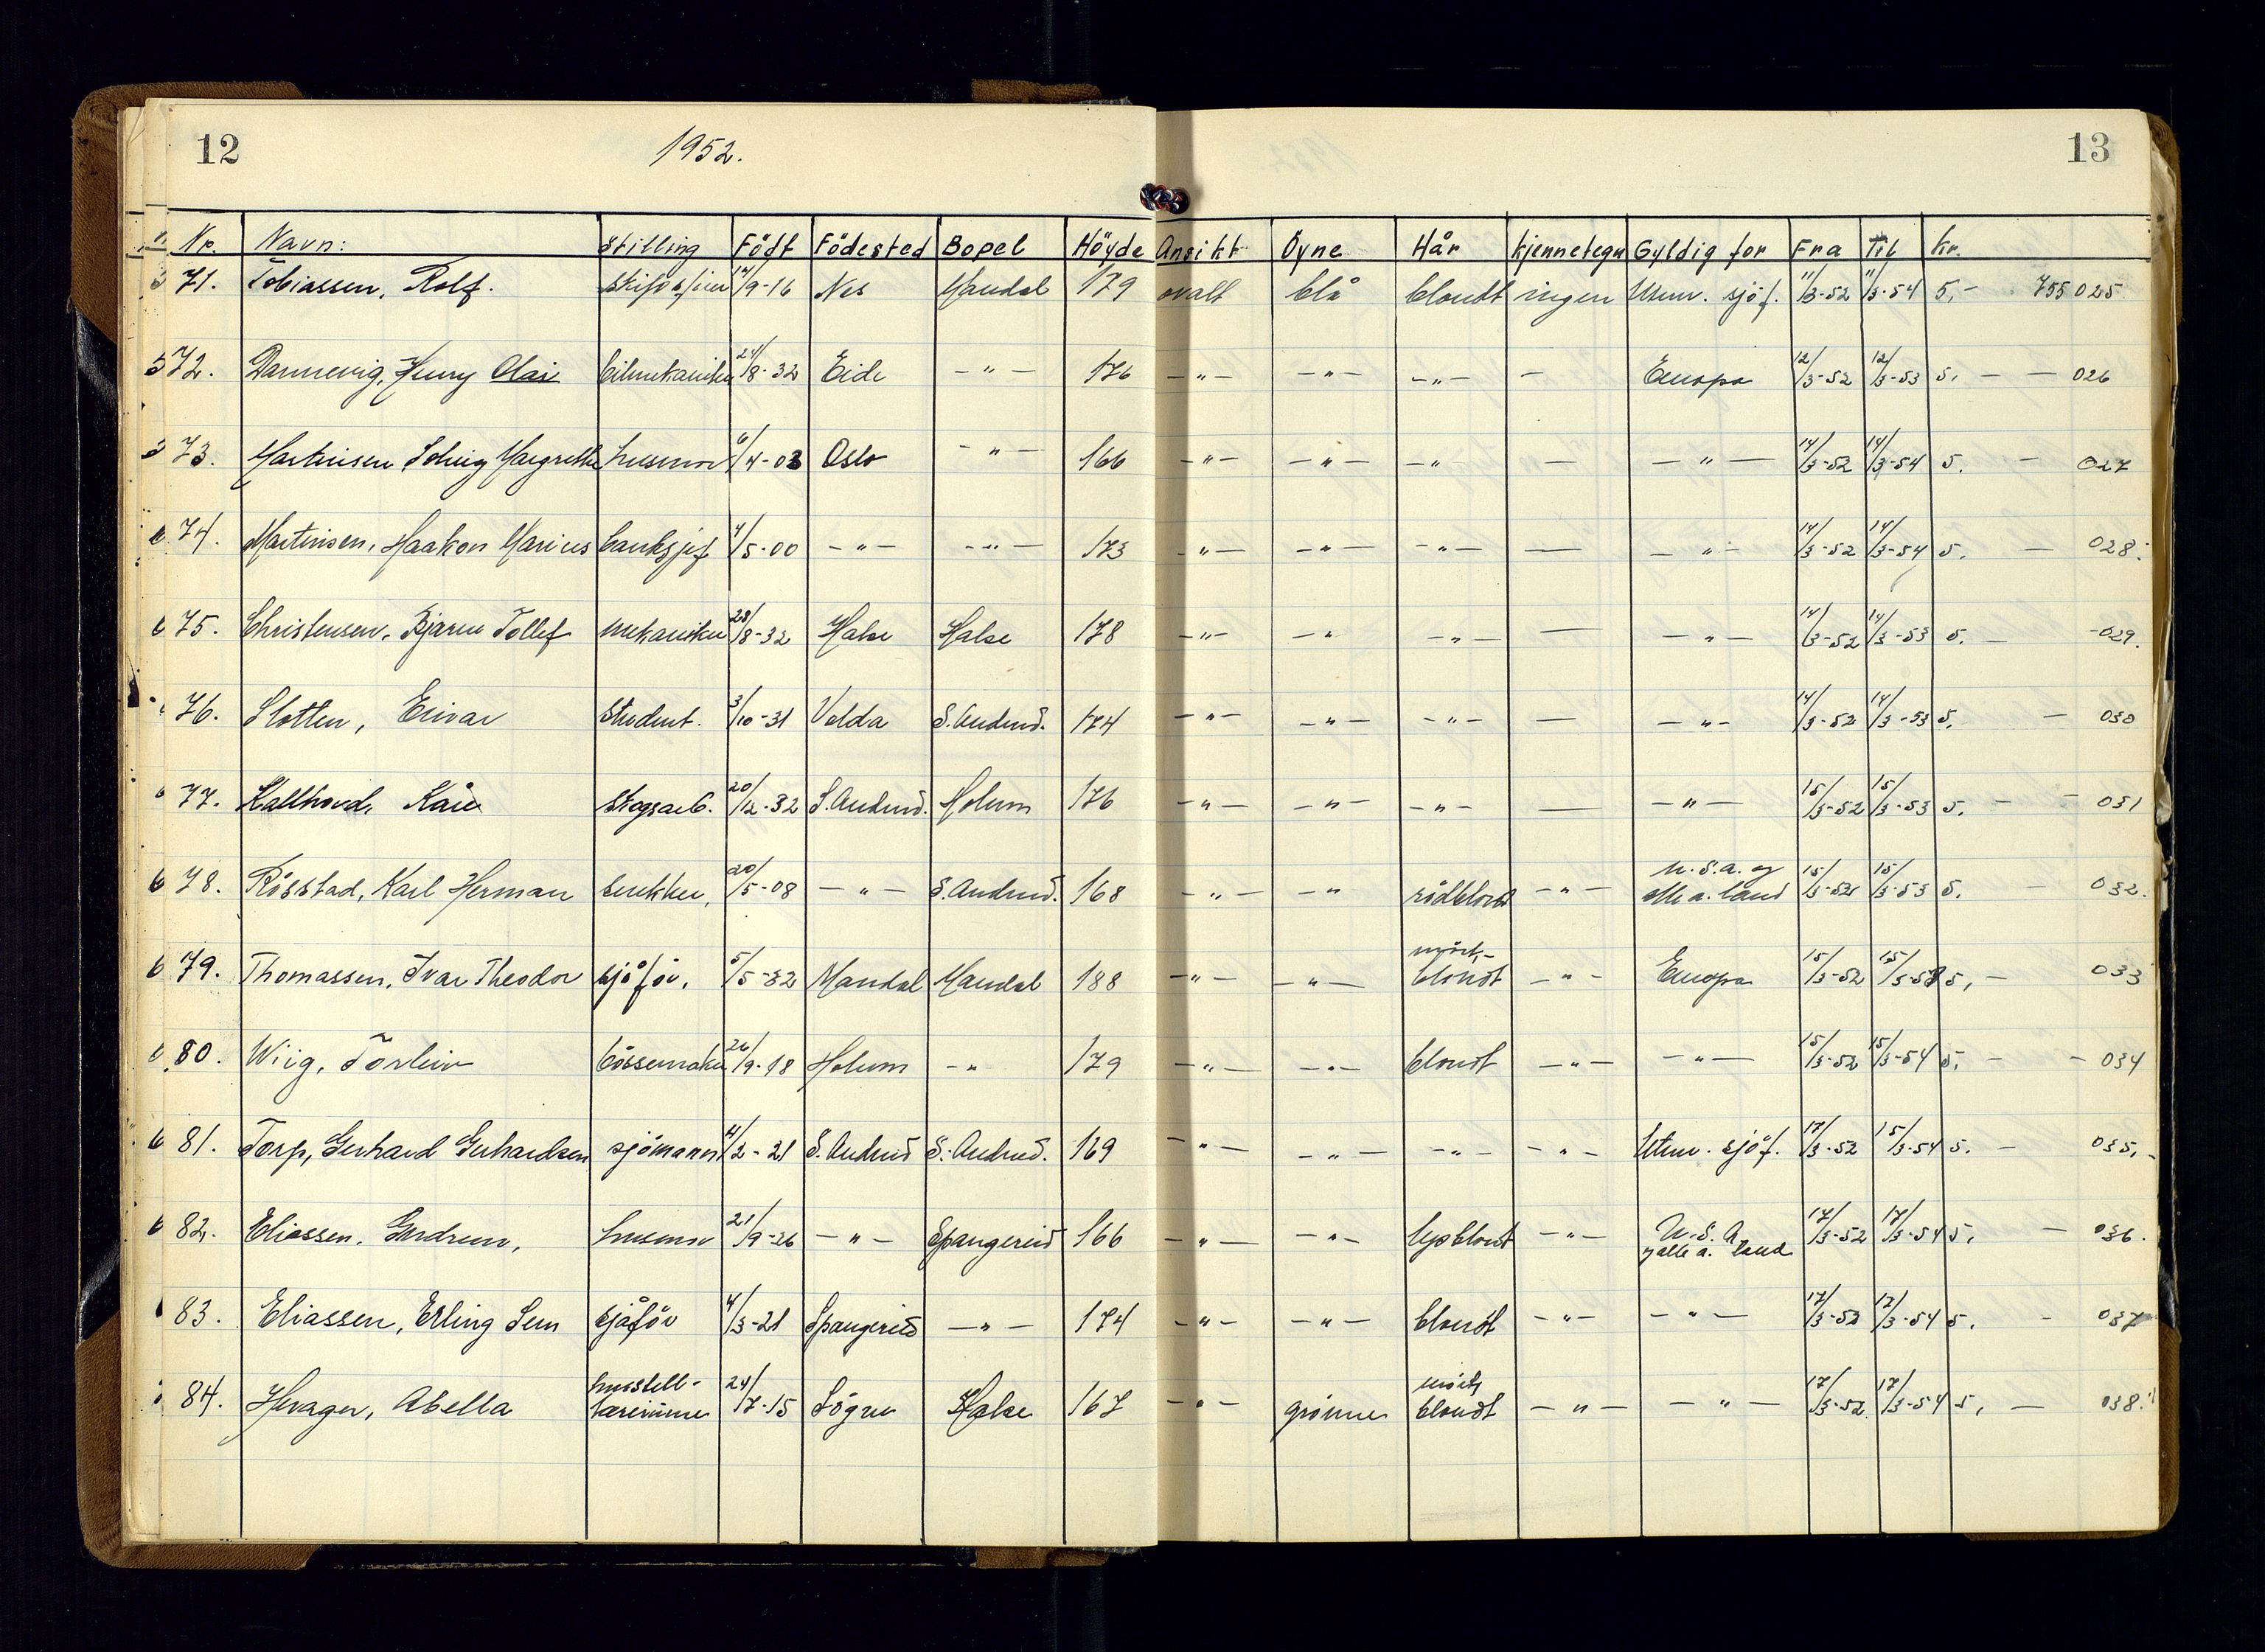 12
1952.
13
Nr. Navn: Stilling Födt Födested Bopel Höyde Ansikt Öyne Hår Kjennetegn Gyldig for Fra Til Kr.
71. Tobiassen, Rolf. 14/9-16 Nes Mandal 179 ovalt blå blondt ingen Utenr. sjöf. 11/3-52 11/3-54 5,- 755025
72. Dannevig, Henry Olai bilmekaniker 24/8-32 Eide -"- 176 -"- -"- -"- - Europa 12/3-52 12/3-53 5, - - 026
73. Martinsen Solveig Margrethe husmor 6/4-03 Oslo -"- 166 -"- -"- -"- - -"- 14/3-52 14/3-54 5. - 027
74. Martinsen, Haakon Marius banksjef 4/5-00 -"- -"- 173 -"- -"- -"- - -"- 14/3-52 14/3-54 5. - 028.
75. Christensen, Bjarne Tollef mekaniker 28/8-32 Halse Halse 178 -"- -"- -"- - -"- 14/3-52 14/3-53 5. - 029.
76. Slotten, Einar student. 3/10-31 Volda S. Audned. 174 -"- -"- -"- - -"- 14/3-52 14/3-53 5. - 030
77. Kallhovd, Kåre skogsarb. 20/12-32 S. Audned. Holum 176 -"- -"- -"- - -"- 15/3-52 15/3-53 5. - - 031
U.S.A. og
78. Rösstad, Karl Herman snekker, 20/5-08 -"- S. Audned. 168 -"- -"- rödblond -"- alle a. land 15/3-52 15/3-53 5. - 032.
mört,-
79. Thomassen, Ivar Theodor sjåför, 5/5-32 Mandal Mandal 188 -"- -"- blondt -"- Europa 15/3-52 15/3-53 5, - 033
80. Wiig, Torleiv börsemaker 26/9-18 Holum -"- 179 -"- -"- blondt -"- -"- 15/3-52 15/3-54 5, - - 034
81. Torp, Gerhard Gerhardsen sjömann 4/2-21 S. Audned S. Audned. 169 -"- -"- -"- -"- Utenr. sjöf. 17/3-52 15/3-54 5. - 035,-
82. Eliassen, Gudrun, husmor 21/9-26 -"- Spangereid 166 -"- -"- lysblont -"- U.S.A 17/3-52 17/3-54 5, - 036.
og alle a. land
83. Eliassen, Erling Sem sjåför 4/3-21 Spangereid -"- 174 -"- -"- blondt -"- -"- 17/3-52 17/3-54 5, - 037
husstell- mört,
84. Hevager, Abella lærerinne 24/7-15 Sögne Halse 167 -"- grönne blondt -"- -"- 17/3-52 17/3-54 5, - 038.